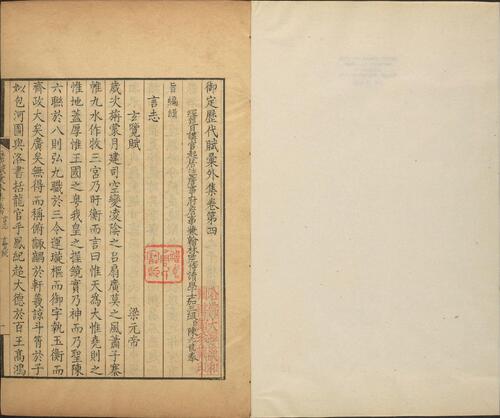 御定歷代賦彙外集卷第四
經筵日講官起居注詹事府詹事兼翰林院侍讀學士加三級臣陳元龍奉
旨編輯
言志
玄覽賦　梁元帝
歲次旃蒙月建司空變淩陰之呂扇廣莫之風蕭子褰
帷九水作牧三宮乃盱衡而言曰惟天為大惟堯則之
惟地蓋厚惟王國之粤我皇之握鏡實乃神而乃聖陳
六聯於八則弘九職於三令運璇樞而御字執玉衡而
齊政大矣廣矣無得而稱俯諏謅於軒羲諒斗筲於子
姒包河圖與洛書括龍官乎鳳紀超大德於百王高鴻